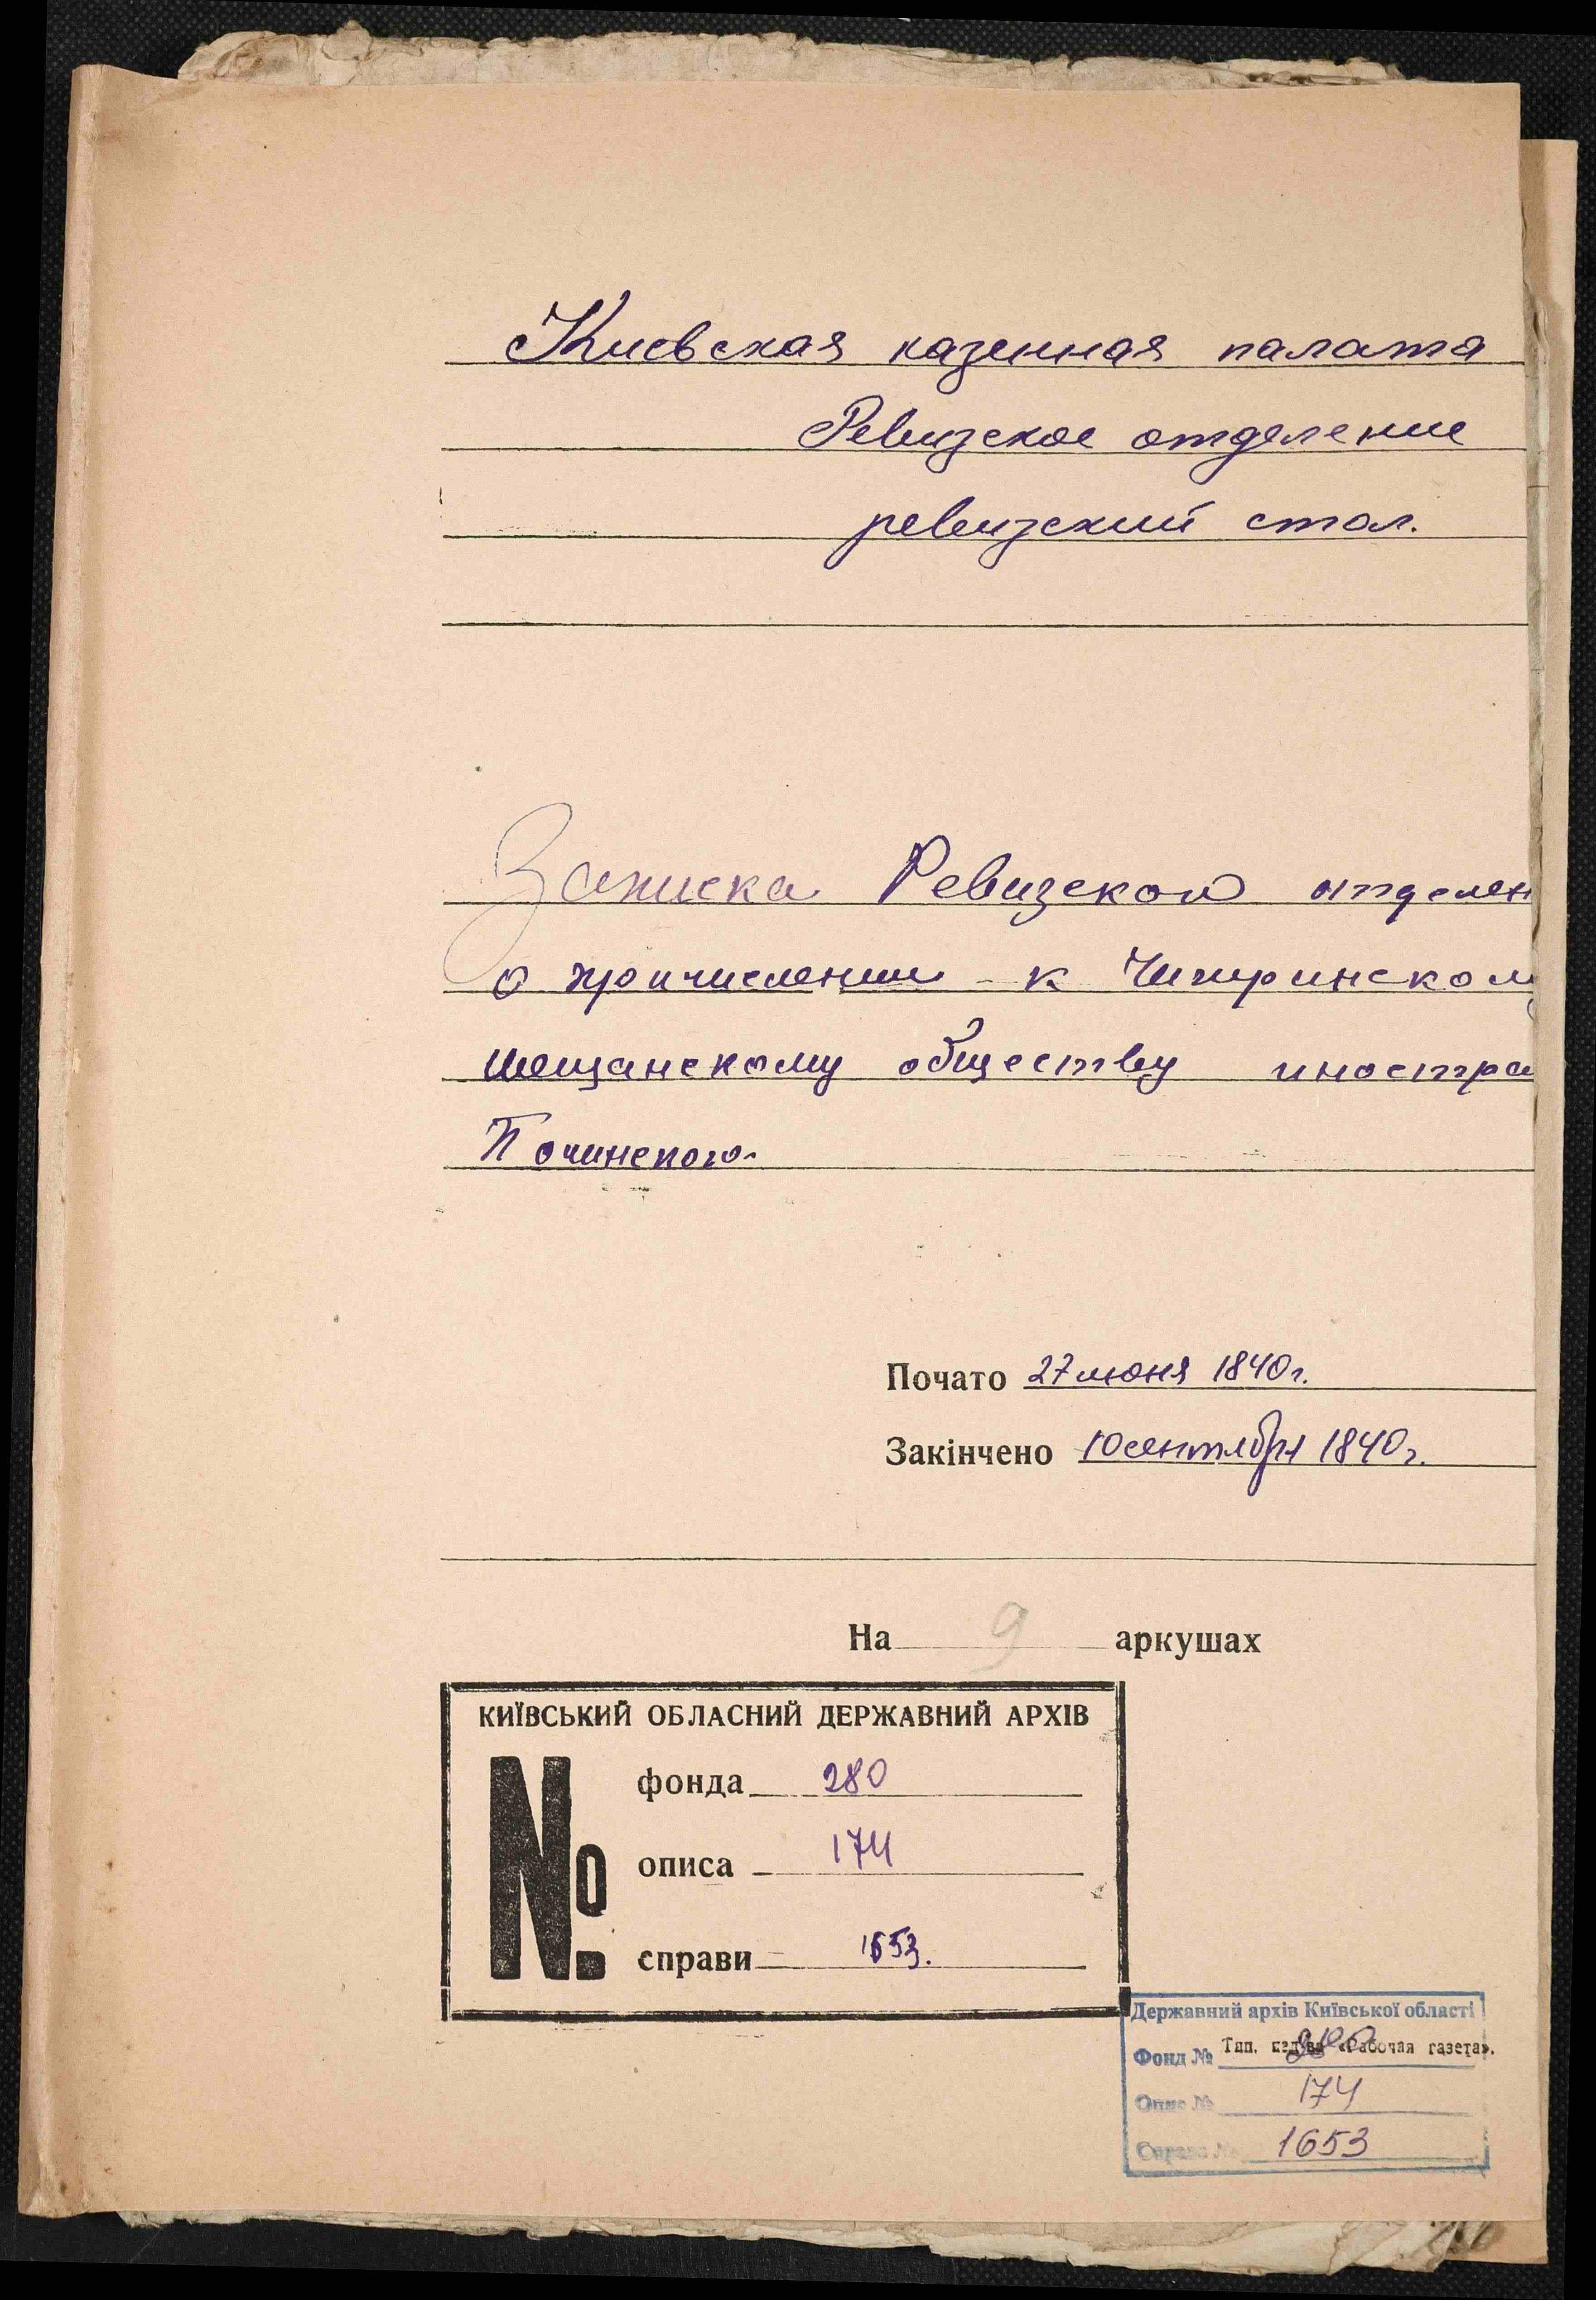 Киевская казенная палата
Ревизское отделение
ревизский стол.
Записка Ревизского отделен
о причислении к Чигиринском
мещанскому обществу иностра
Почато 27 июня 1840 г.
Закінчено 10 сентября 1840 г.
На 9 аркушах
КИЇВСЬКИЙ ОБЛАСНИЙ ДЕРЖАВНИЙ АРХІВ
№
фонда 280
описа 174
справи 1653.
Державний архів Київської області
Тип. изд-ва «Рабочая газета».
Фонд № 280
Опис № 174
Справа № 1653